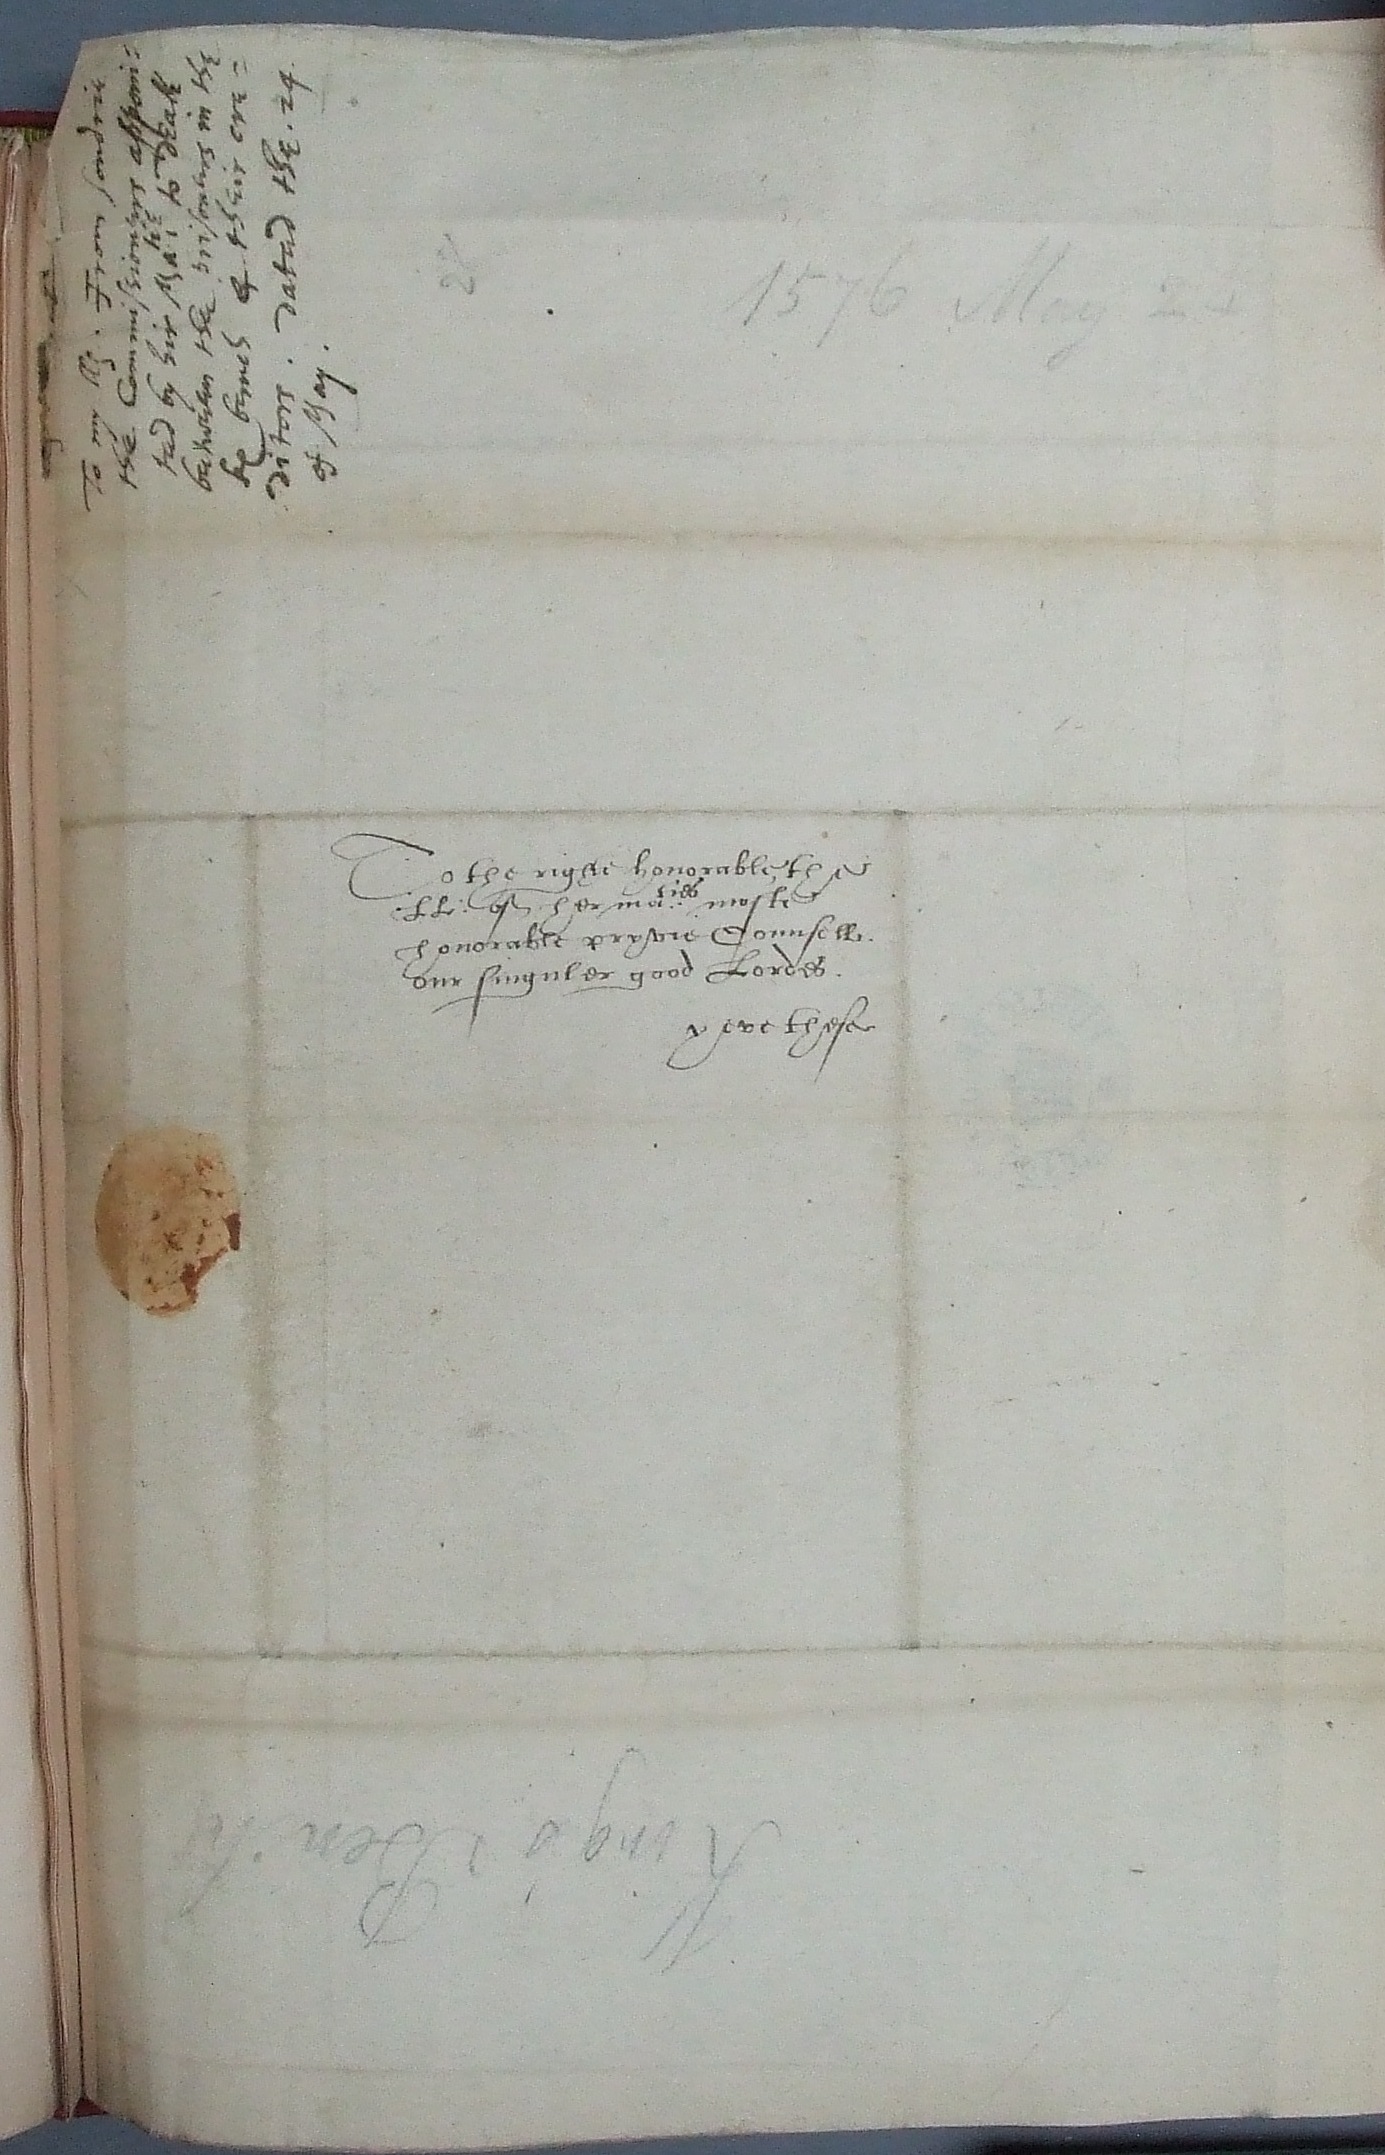 To my LL. from sondrie
the Commissioners appoin=
ted by hir Ma.tie to heare
betwene the prisoners in ky
ge bench & their cre=
ditors. dated the. 24.
of May.
1576 May 24
To the right honorable the
LL: of her ma:ties moste
honorable pryvie Counsell.
our singuler good Lordes.
yeve these
King's Bench